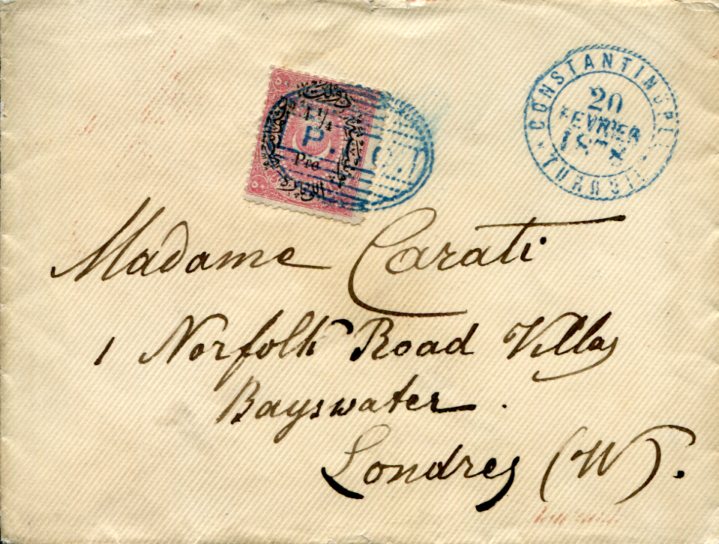 1 1/4
P.
Pre
CONSTANTINOPLE
20
FEVRIER
1878
TURQUIE
Madame Carati
1 Norfolk Road Villas
Bayswater.
Londres (W).